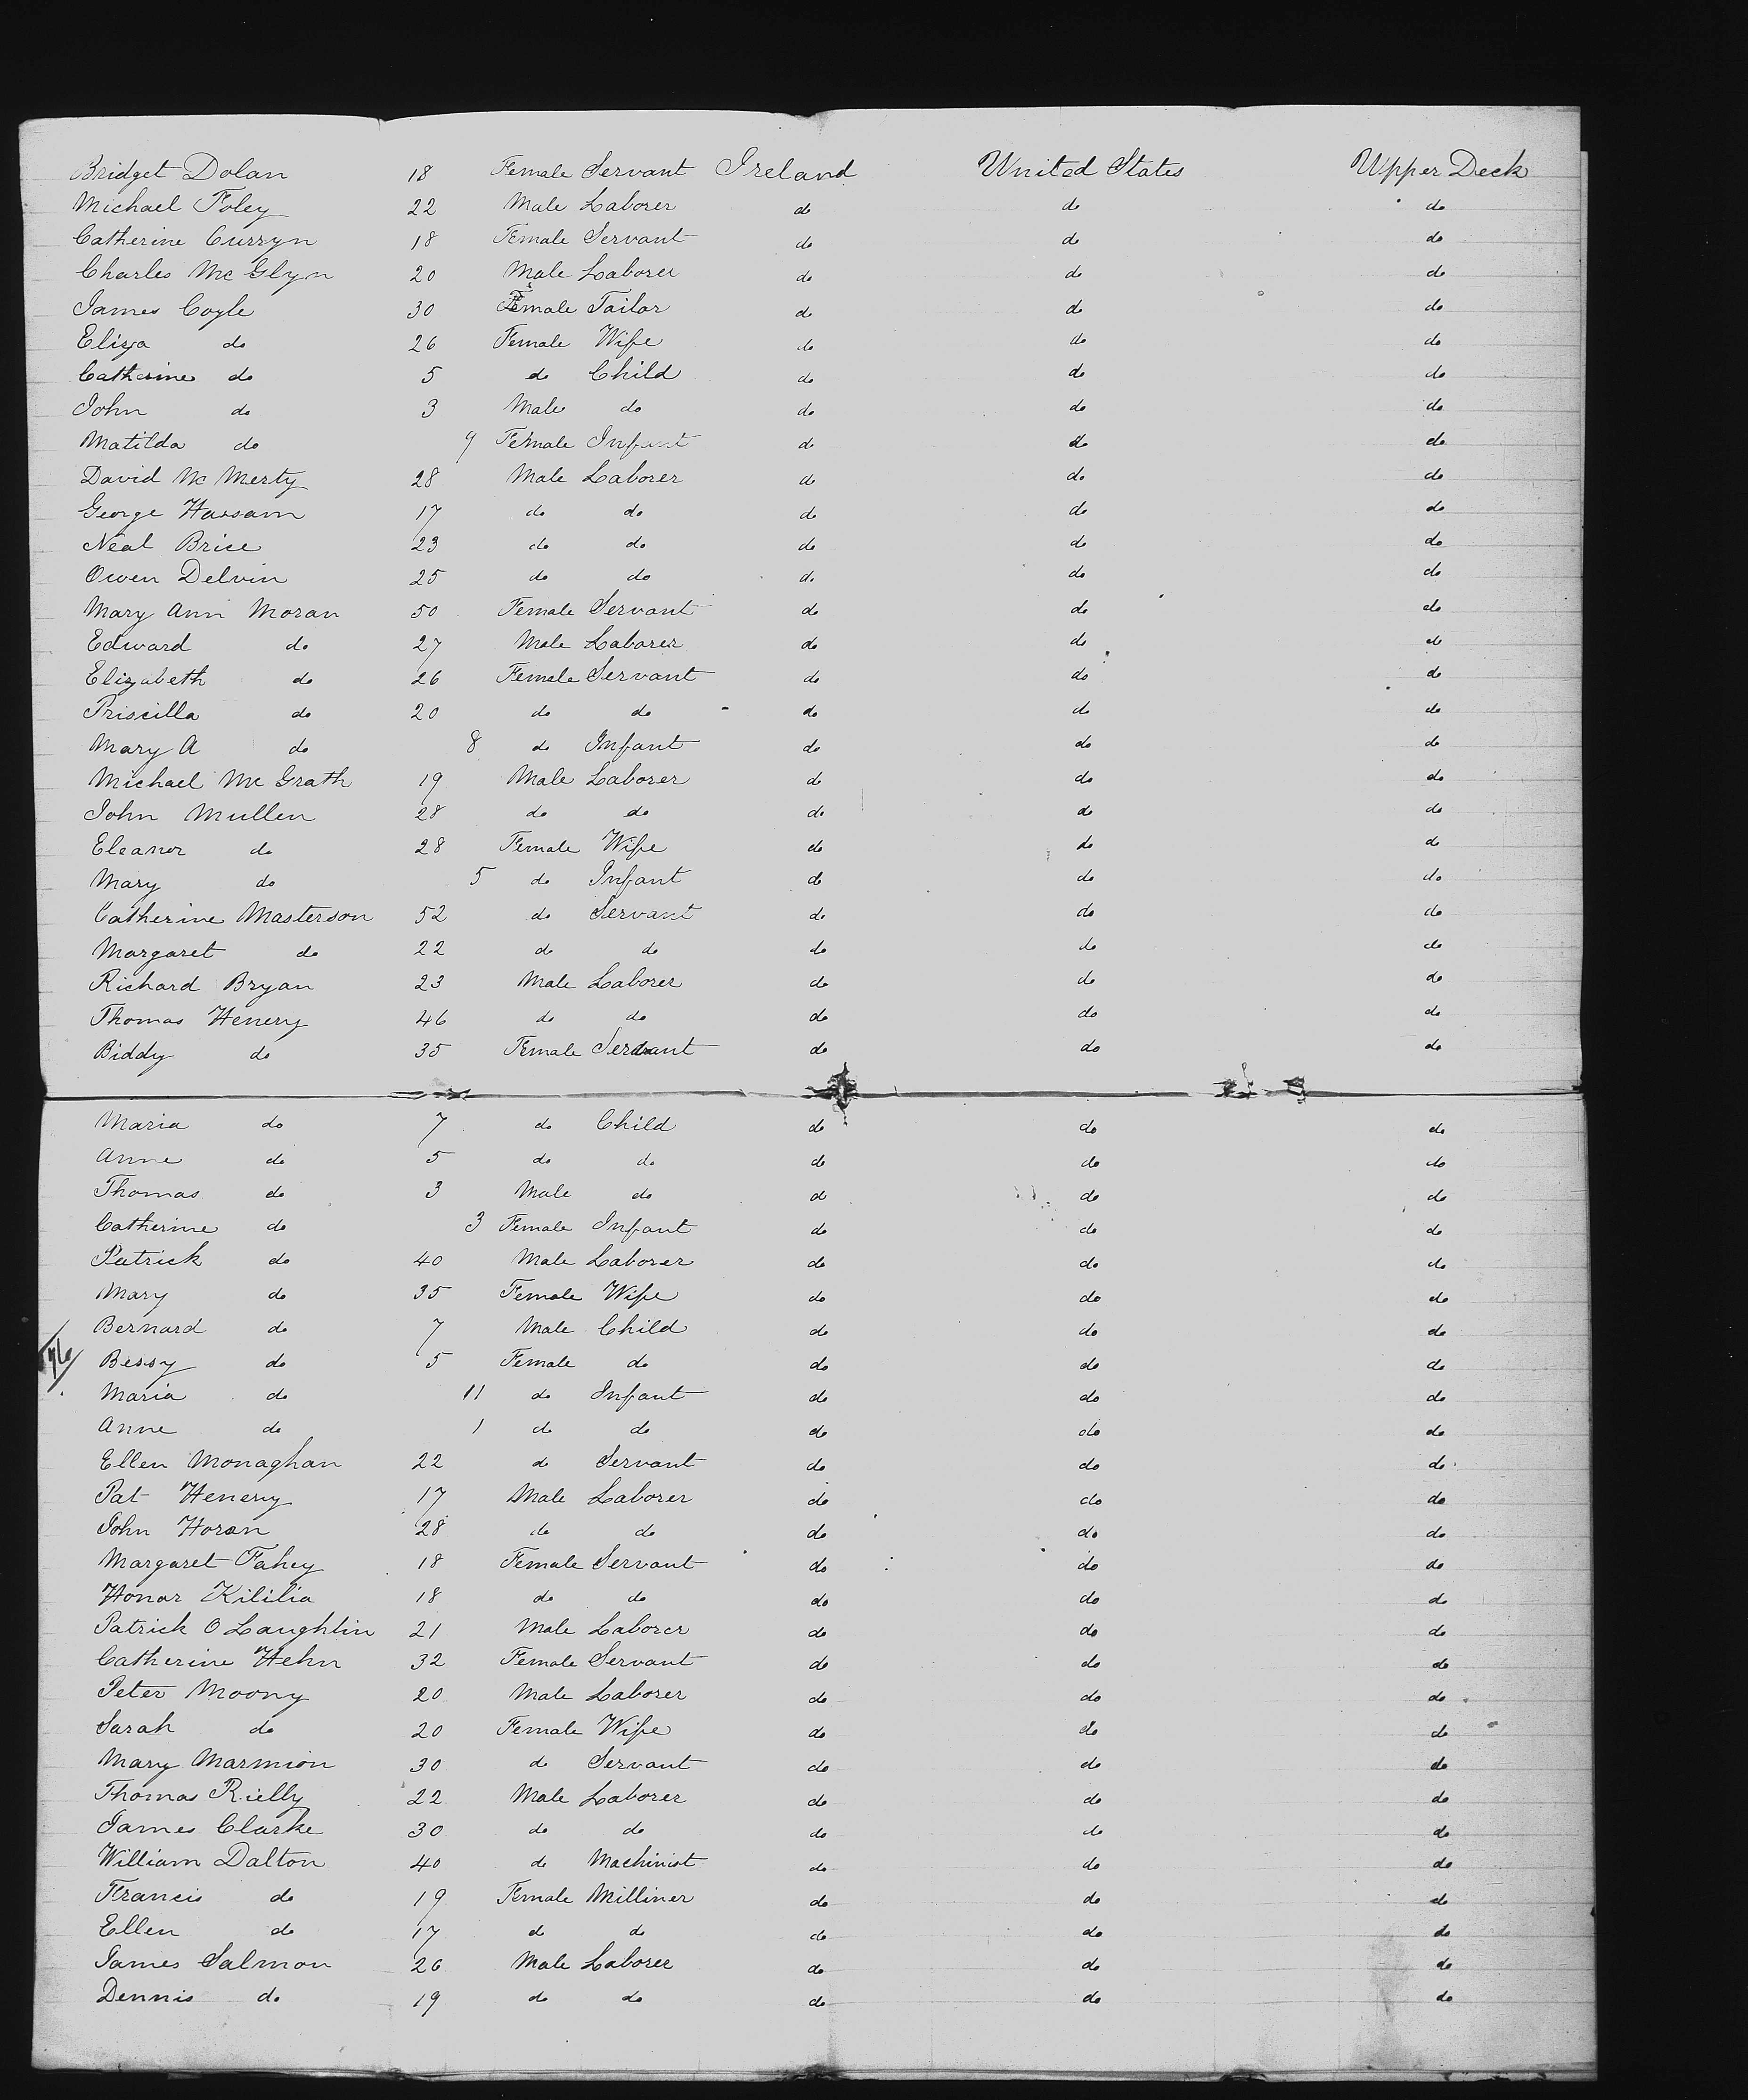 Bridget Dolan 18 Female Servant Ireland United States Upper Deck
Michael Foley 22 Male Laborer do do do
Catherine Curryn 18 Female Servant do do do
Charles Mc Glyn 20 Male Laborer do do do
James Coyle 30 Female Tailor do do do
Eliza do 26 Female Wife do do do
Catherine do 5 do Child do do do
John do 3 Male do do do do
Matilda do 9 Female Infant do do do
David Mc Merty 28 Male Laborer do do do
George Hassam 17 do do do do do
Neal Brice 23 do do do do do
Owen Delvin 25 do do do do do
Mary Ann Moran 50 Female Servant do do do
Edward do 27 Male Laborer do do do
Elizabeth do 26 Female Servant do do do
Priscilla do 20 do do do do do
Mary A do 8 do Infant do do do
Michael Mc Grath 19 Male Laborer do do do
John Mullen 28 do do do do do
Eleanor do 28 Female Wife do do do
Mary do 5 do Infant do do do
Catherine Masterson 52 do Servant do do do
Margaret do 22 do do do do do
Richard Bryan 23 Male Laborer do do do
Thomas Henery 46 do do do do do
Biddy do 35 Female Servant do do do
Maria do 7 do Child do do do
Anne do 5 do do do do do
Thomas do 3 Male do do do do
Catherine do 3 Female Infant do do do
Patrick do 40 Male Laborer do do do
Mary do 35 Female Wife do do do
Bernard do 7 Male Child do do do
Bessy do 5 Female do do do do
Maria do 11 do Infant do do do
Anne do 1 do do do do do
Ellen Monaghan 22 do Servant do do do
Pat Henery 17 Male Laborer do do do
John Horan 28 do do do do do
Margaret Fahey 18 Female Servant do do do
Honor Kililia 18 do do do do do
Patrick O Laughlin 21 Male Laborer do do do
Catherine Hehn 32 Female Servant do do do
Peter Moony 20 Male Laborer do do do
Sarah do 20 Female Wife do do do
Mary Marmion 30 do Servant do do do
Thomas Rielly 22 Male Laborer do do do
James Clarke 30 do do do do do
William Dalton 40 do Machinist do do do
Francis do 19 Female Milliner do do do
Ellen do 17 do do do do do
James Salmon 26 Male Laborer do do do
Dennis do 19 do do do do do